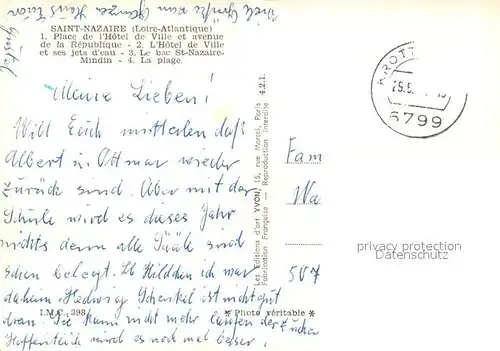 Viele Grüße vom ganzen Haus
Gustel
SAINT-NAZAIRE (Loire-Atlantique)
1. Place de l'Hôtel de Ville et avenue
de la République - 2. L'Hôtel de Ville
et ses jets d'eau - 3. Le bac St-Nazaire-
Mindin - 4. La plage.
Meine Lieben!
Will Euch mitteilen daß
Albert u. Ottmar wieder
zurück sind. Aber mit der
Schule wird es dieses Jahr
nichts denn alle Säale sind
schon belegt. Ob Hildchen ich war
daheim, Hedwig Schenkel ist nicht gut
dran. Sie kann nicht mehr laufen der Zucker
Hoffentlich wird es noch mal besser!
I.M.C. 393
* Photo véritable *
Les Editions d'art YVON, 15, rue Martel, Paris 4.2.1.
Fabrication Française - Reproduction interdite
KROTT
6799
Fam
Wa
507
privacy protection
Datenschutz